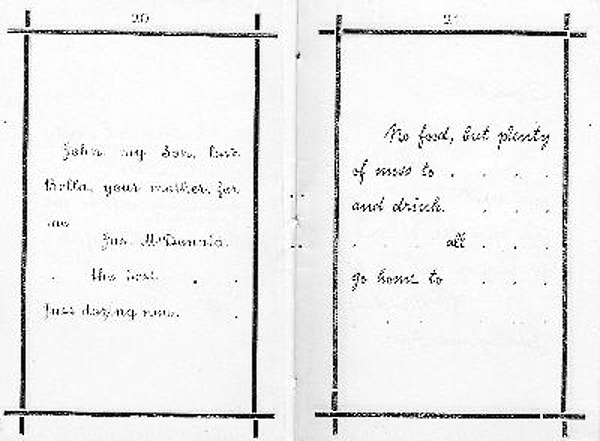 20
John my Son, love
Bella, your mother, for
me
Jas. McDonald.
. the best . .
Just dozing now. .
21
No food, but plenty
of moss to . . . .
and drink. . . .
. . . all . . .
go home to . . .
. . . . . .